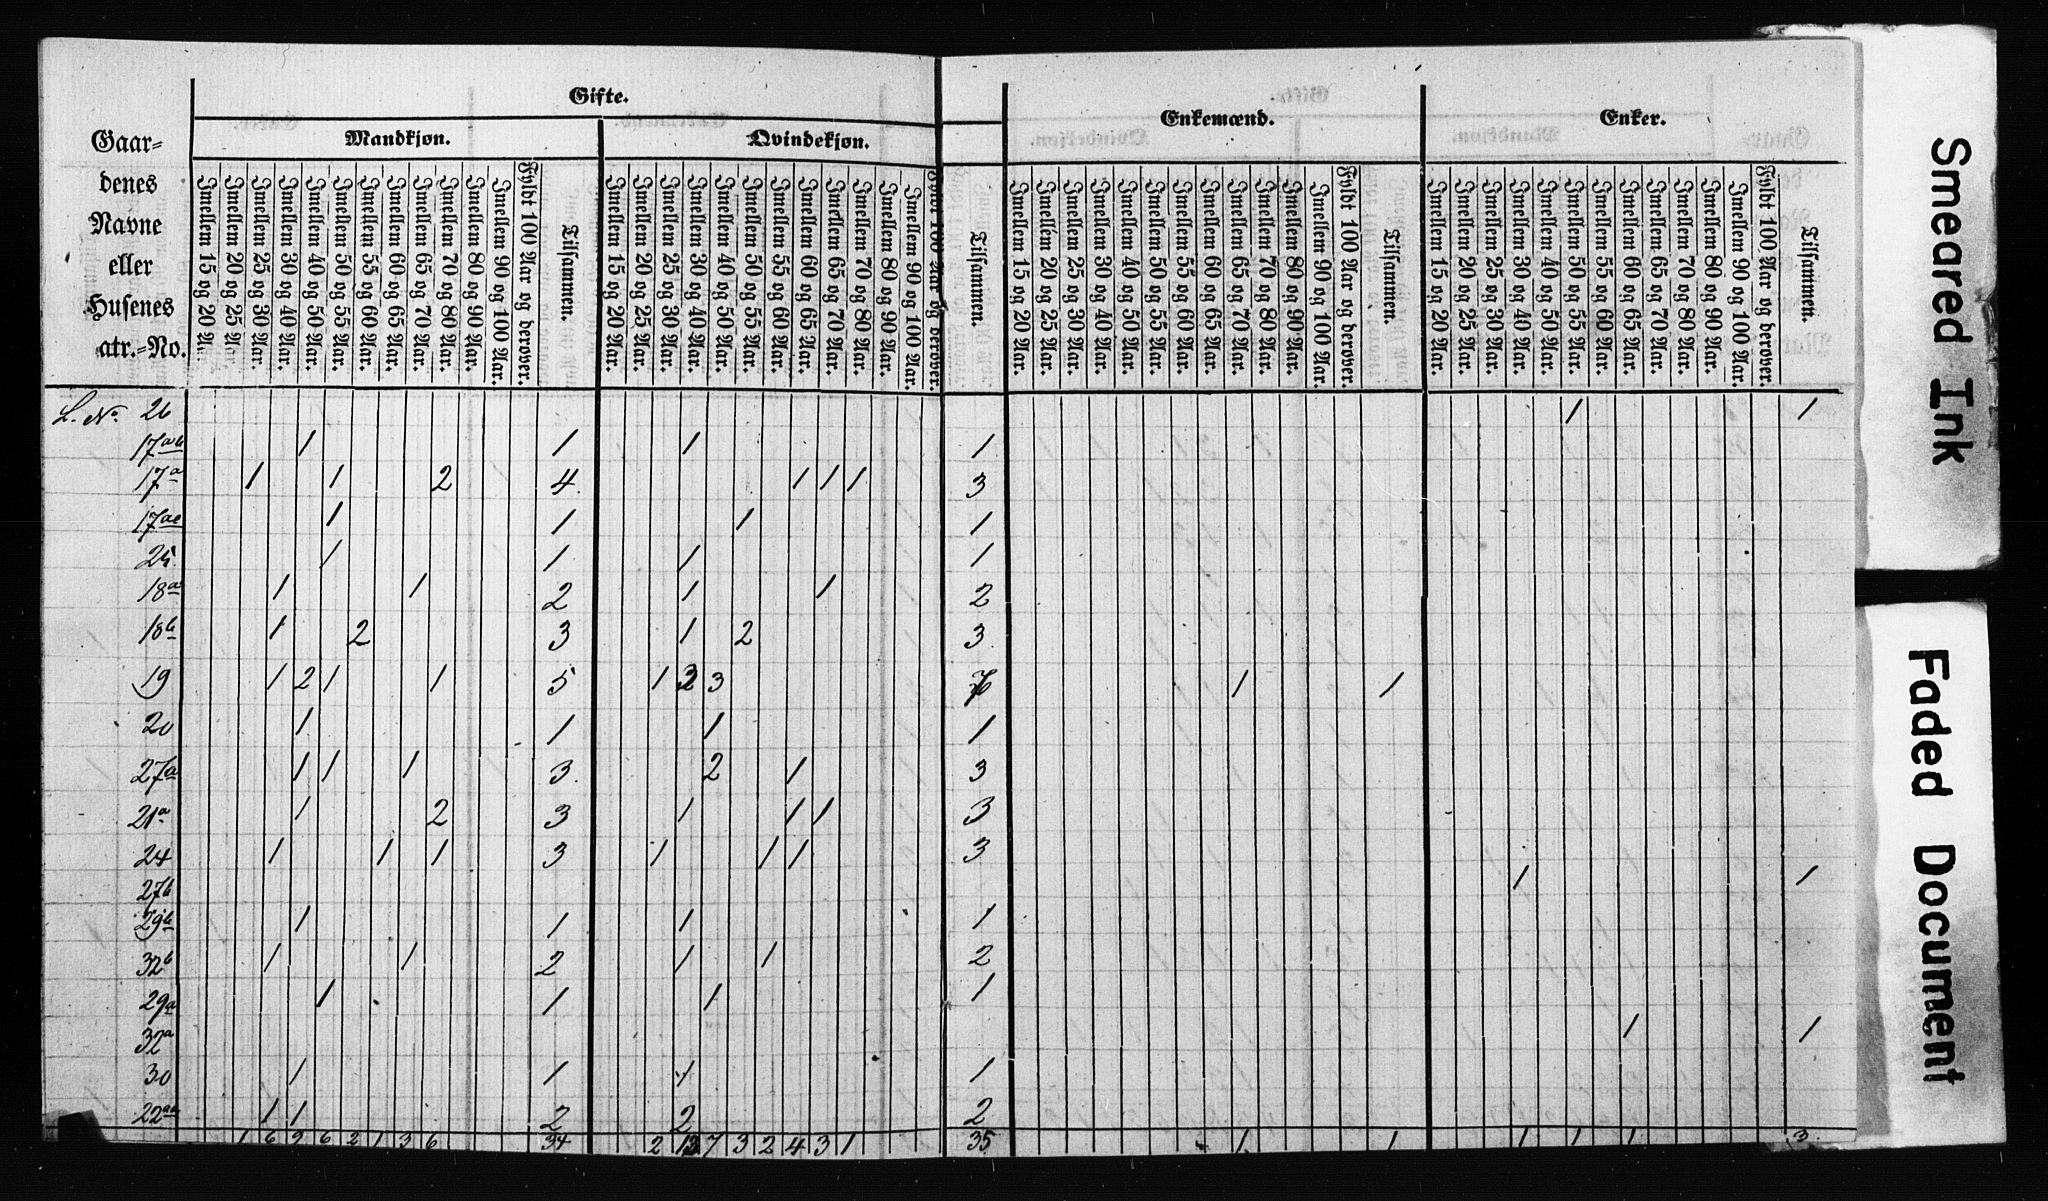 Gifte.
Mandkjøn. Qvindekjøn. Enkemænd. Enker.
Gaar-
denes
Navne
eller
Husenes
atr.-No.
Imellem 15 og 20 Aar.
Imellem 20 og 25 Aar.
Imellem 25 og 30 Aar.
Imellem 30 og 40 Aar.
Imellem 40 og 50 Aar.
Imellem 50 og 55 Aar.
Imellem 55 og 60 Aar.
Imellem 60 og 65 Aar.
Imellem 65 og 70 Aar.
Imellem 70 og 80 Aar.
Imellem 80 og 90 Aar.
Imellem 90 og 100 Aar.
Fyldt 100 Aar og derover.
Tilsammen.
Imellem 15 og 20 Aar.
Imellem 20 og 25 Aar.
Imellem 25 og 30 Aar.
Imellem 30 og 40 Aar.
Imellem 40 og 50 Aar.
Imellem 50 og 55 Aar.
Imellem 55 og 60 Aar.
Imellem 60 og 65 Aar.
Imellem 65 og 70 Aar.
Imellem 70 og 80 Aar.
Imellem 80 og 90 Aar.
Imellem 90 og 100 Aar.
Fyldt 100 Aar og derover.
Tilsammen.
Imellem 15 og 20 Aar.
Imellem 20 og 25 Aar.
Imellem 25 og 30 Aar.
Imellem 30 og 40 Aar.
Imellem 40 og 50 Aar.
Imellem 50 og 55 Aar.
Imellem 55 og 60 Aar.
Imellem 60 og 65 Aar.
Imellem 65 og 70 Aar.
Imellem 70 og 80 Aar.
Imellem 80 og 90 Aar.
Imellem 90 og 100 Aar.
Fyldt 100 Aar og derover.
Tilsammen.
Imellem 15 og 20 Aar.
Imellem 20 og 25 Aar.
Imellem 25 og 30 Aar.
Imellem 30 og 40 Aar.
Imellem 40 og 50 Aar.
Imellem 50 og 55 Aar.
Imellem 55 og 60 Aar.
Imellem 60 og 65 Aar.
Imellem 65 og 70 Aar.
Imellem 70 og 80 Aar.
Imellem 80 og 90 Aar.
Imellem 90 og 100 Aar.
Fyldt 100 Aar og derover.
Tilsammen.
L. No. 26 1 1
17ab 1 1 1 1
17a 1 1 2 4 1 1 1 3
17ac 1 1 1 1
25. 1 1 1 1
18a 1 1 2 1 1 2
18b 1 2 3 1 2 3
19 1 2 1 1 5 1 3 3 7 1 1
20 1 1 1 1
27a 1 1 1 3 2 1 3
21a 1 2 3 1 1 1 3
24 1 1 1 3 1 1 1 3
27b 1 1
29b 1 1 1 1
32b 1 1 2 1 1 2
29a 1 1 1 1
32a 1 1
30 1 1 1 1
22aa 1 1 2 2 2
1 6 9 6 2 1 3 6 34 2 13 7 3 2 4 3 1 35 1 1 1 1 1 3
Smeared Ink
Faded Document